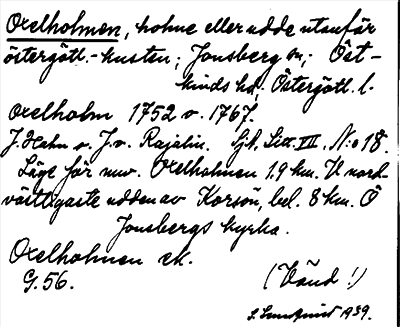 Oxelholmen, holme eller udde utanför
östergötl.-kusten; Jonsberg sn; Öst-
kinds hd; Östergötl. l.
Oxelholm 1752 o. 1767.
J. Hahn o. J. v. Rajalin. Sjk, Litt. VII. N:o 18.
Läge för nuv. Oxelholmen 1,9 km. V nord-
västligaste udden av Korsön, bel. 8 km. Ö
Jonsbergs kyrka.
Oxelholmen ek.
G. 56.
(Vänd!)
S. Lundquist 1939.